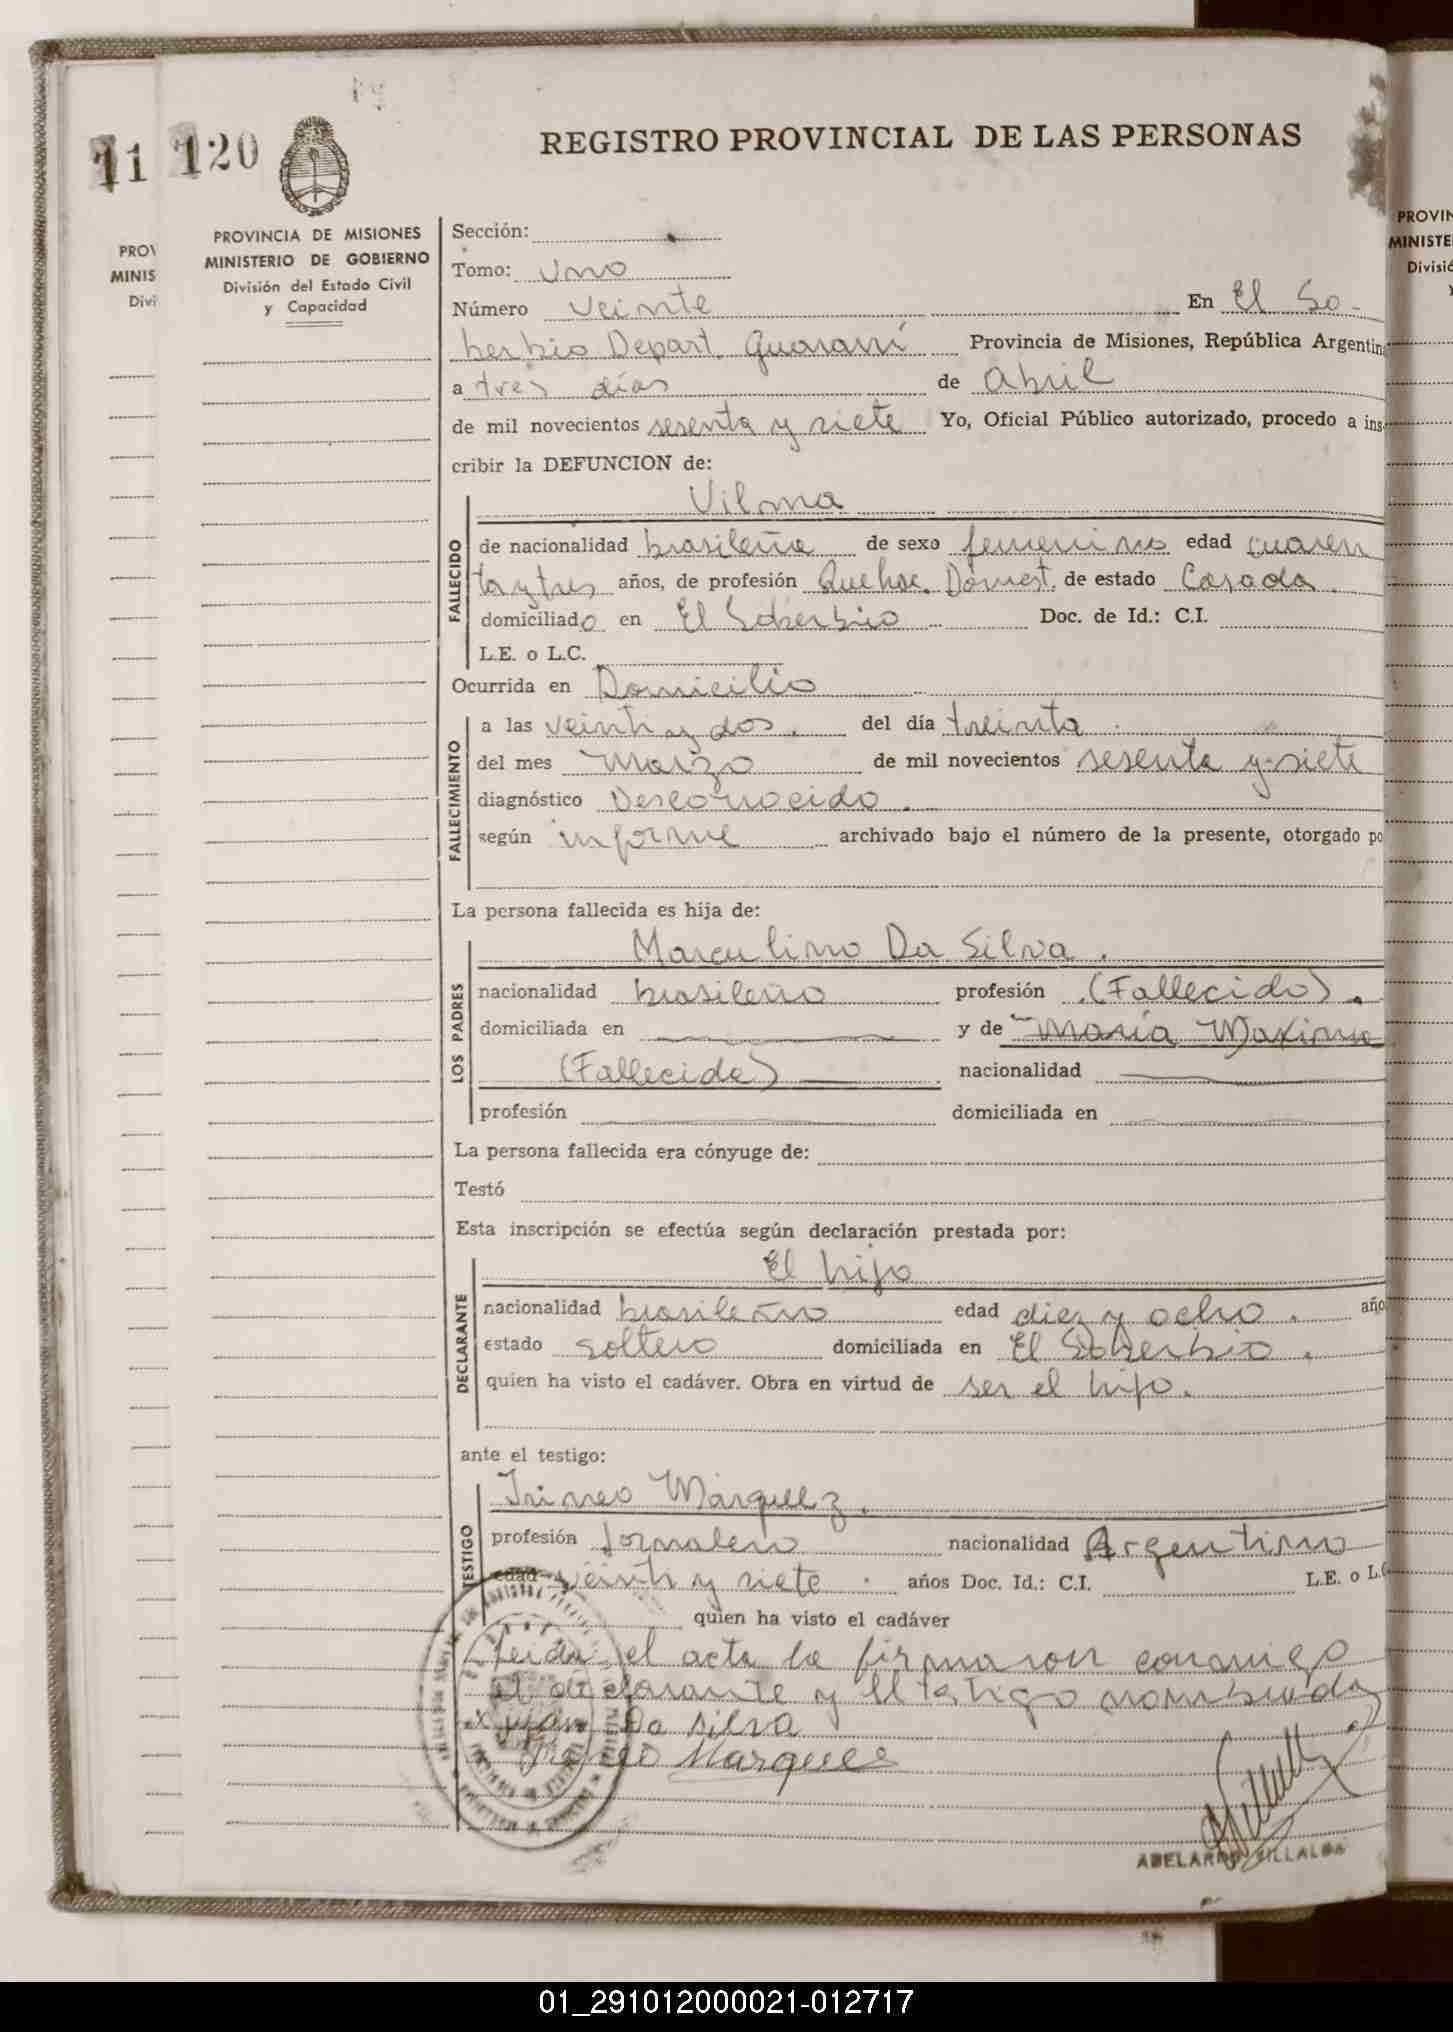 11 120
REGISTRO PROVINCIAL DE LAS PERSONAS
PROVINCIA DE MISIONES
MINISTERIO DE GOBIERNO
División del Estado Civil
y Capacidad
Sección:
Tomo: Uno
Número Veinte En El So-
berbio Depart. Guaraní Provincia de Misiones, República Argentin
a tres días de Abril
de mil novecientos sesenta y siete Yo, Oficial Público autorizado, procedo a ins-
cribir la DEFUNCION de:
Vilma
FALLECIDO
de nacionalidad brasileña de sexo femenino edad cuaren
ta y tres años, de profesión Quehac. Domest. de estado Casada.
domiciliado en El Soberbio Doc. de Id.: C.I.
L.E. o L.C.
Ocurrida en Domicilio
FALLECIMIENTO
a las veinti y dos. del día treinta
del mes Marzo de mil novecientos sesenta y siete
diagnóstico Desconocido.
según informe archivado bajo el número de la presente, otorgado po
La persona fallecida es hija de:
LOS PADRES
Marculino Da Silva.
nacionalidad brasileño profesión (Fallecido).
domiciliada en y de María Maxima
(Fallecida) nacionalidad
profesión domiciliada en
La persona fallecida era cónyuge de:
Testó
Esta inscripción se efectúa según declaración prestada por:
DECLARANTE
El hijo
nacionalidad brasileño edad diez y ocho. año
estado soltero domiciliada en El Soberbio.
quien ha visto el cadáver. Obra en virtud de ser el hijo.
ante el testigo:
TESTIGO
Irineo Márquez.
profesión Jornalero nacionalidad Argentino
edad veinti y siete años Doc. Id.: C.I. L.E. o L.C
quien ha visto el cadáver
Leída el acta la firmaron conmigo
el declarante y el testigo nombrado
Da silva
Marques
ABELARDO VILLALBA
PROV
MINIS
Divi
PROVIN
MINISTE
Divisió
01_291012000021-012717